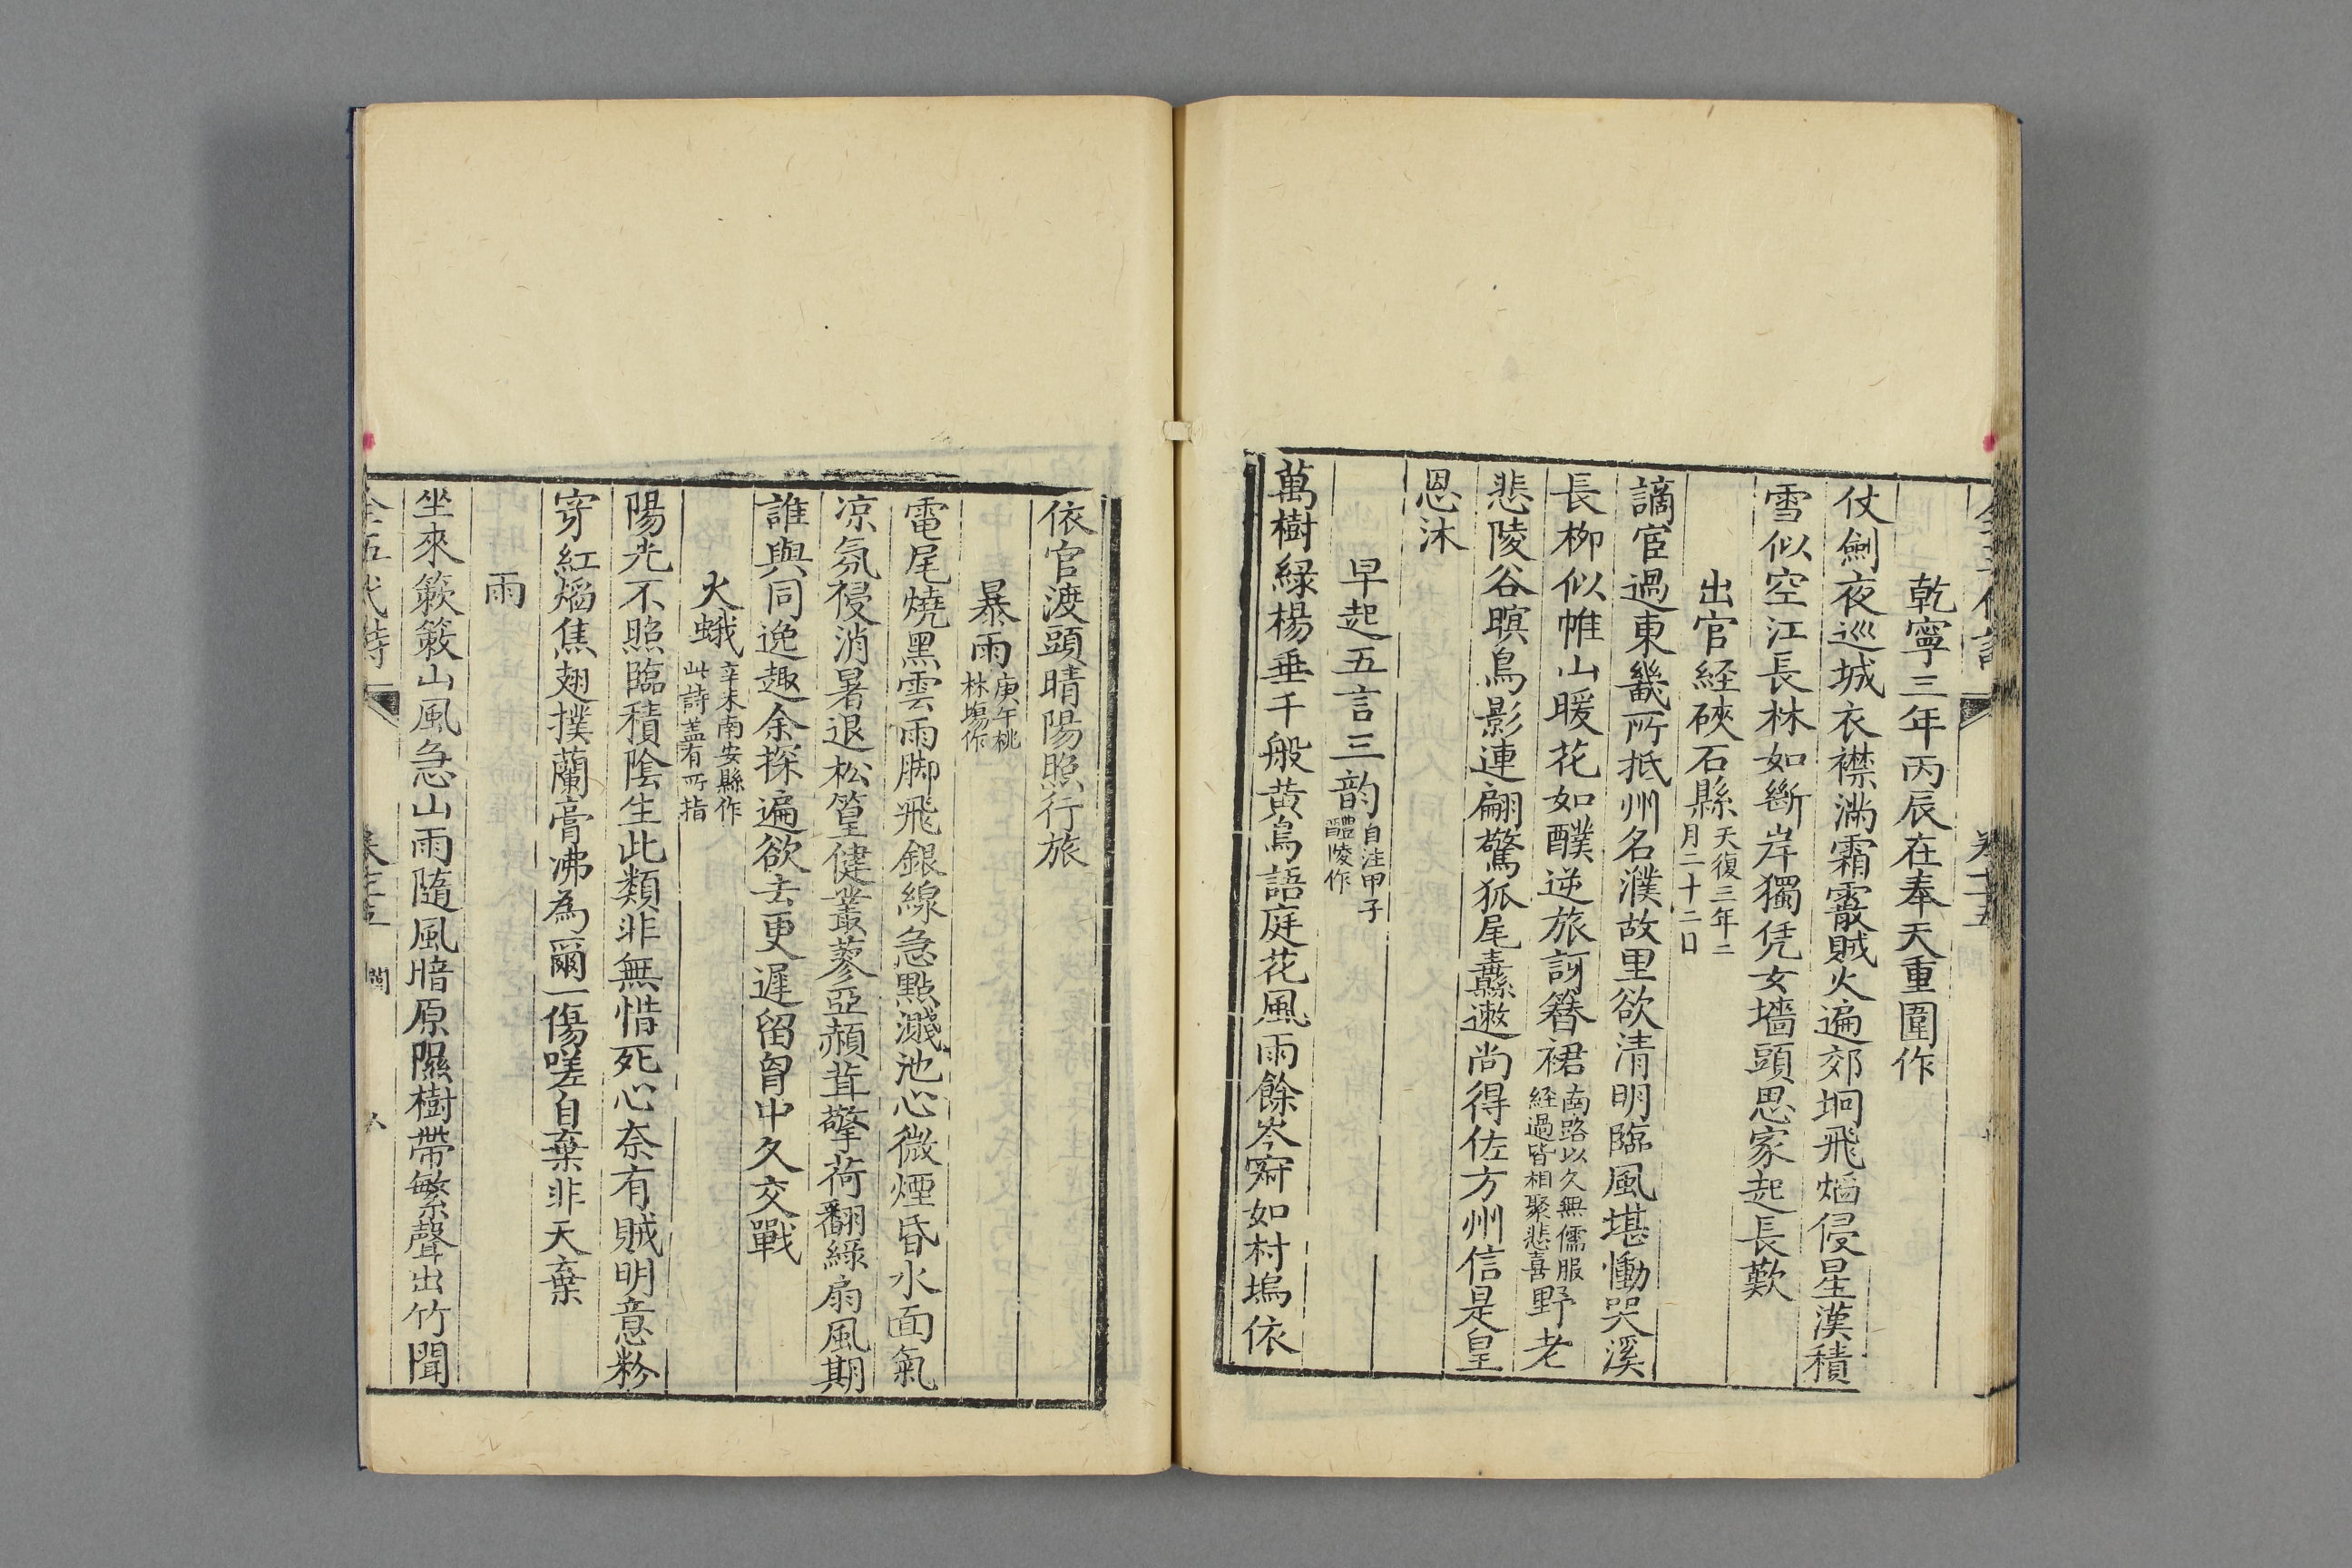 乾寧三年丙辰在奉天重圍作
仗劍夜巡城衣襟滿霜霰賊火遍郊坰飛熖侵星漢積
雪似空江長林如斷岸獨凭女墻頭思家起長歎
出官経硤石縣天復三年二
月二十二日
謫宦過東畿所抵州名濮故里欲清明臨風堪慟哭溪
長柳似帷山暖花如醭逆旅訝簪裾南路以久無儒服
経過皆相聚悲喜野老
悲陵谷暝鳥影連翩驚狐尾纛遬尚得佐方州信是皇
恩沐
早起五言三韵自注甲子
醴陵作
萬樹綠楊垂千般黄鳥語庭花風雨餘岑寂如村塢依
依官渡頭晴陽照行旅
暴雨庚午桃
林塲作
電尾燒黑雲雨脚飛銀線急點濺池心微煙昏水面氣
凉氛祲消暑退松篁健叢蓼亞赬茸擎荷翻綠扇風期
誰與同逸趣余探遍欲去更遲留胷中久交戰
火蛾辛未南安縣作
此詩葢有所指
陽光不照臨積陰生此類非無惜死心奈有賊明意粉
穿紅熖焦翅撲蘭膏沸為爾一傷嗟自棄非天棄
雨
坐來簌簌山風急山雨隨風暗原隰樹帶繁聲出竹聞
全五代詩